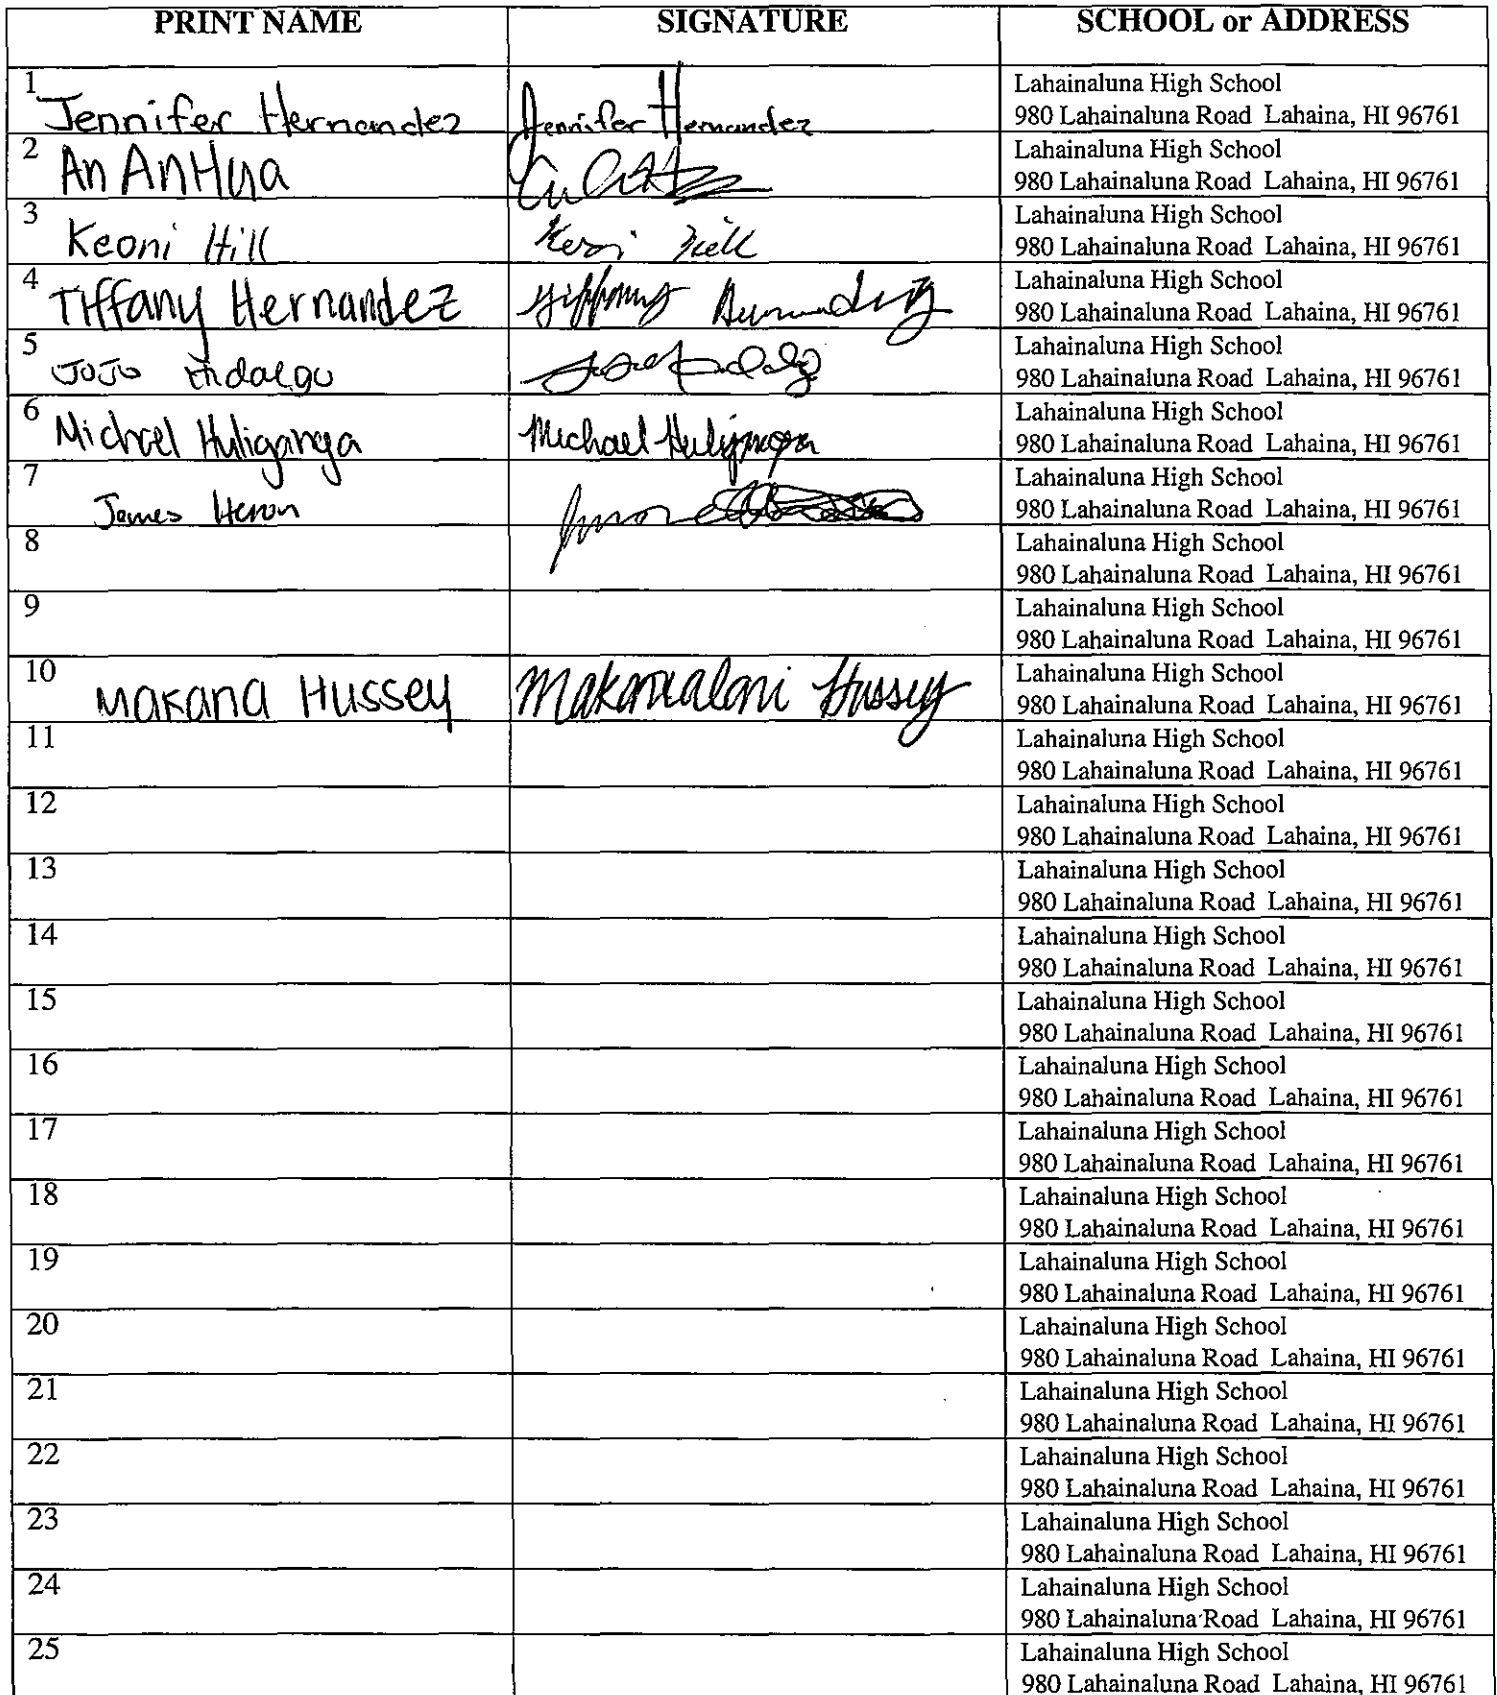 PRINT NAME SIGNATURE SCHOOL or ADDRESS
1 Jennifer Hernandez Jennifer Hernandez Lahainaluna High School
980 Lahainaluna Road Lahaina, HI 96761
2 An AnHua Lahainaluna High School
980 Lahainaluna Road Lahaina, HI 96761
3 Keoni Hill Keoni Hill Lahainaluna High School
980 Lahainaluna Road Lahaina, HI 96761
4 Tiffany Hernandez Tiffany Hernandez Lahainaluna High School
980 Lahainaluna Road Lahaina, HI 96761
5 JoJo Hidalgo Lahainaluna High School
980 Lahainaluna Road Lahaina, HI 96761
6 Michael Huliganga Michael Huliganga Lahainaluna High School
980 Lahainaluna Road Lahaina, HI 96761
7 James Heron Lahainaluna High School
980 Lahainaluna Road Lahaina, HI 96761
8 Lahainaluna High School
980 Lahainaluna Road Lahaina, HI 96761
9 Lahainaluna High School
980 Lahainaluna Road Lahaina, HI 96761
10 Makana Hussey Makanalani Hussey Lahainaluna High School
980 Lahainaluna Road Lahaina, HI 96761
11 Lahainaluna High School
980 Lahainaluna Road Lahaina, HI 96761
12 Lahainaluna High School
980 Lahainaluna Road Lahaina, HI 96761
13 Lahainaluna High School
980 Lahainaluna Road Lahaina, HI 96761
14 Lahainaluna High School
980 Lahainaluna Road Lahaina, HI 96761
15 Lahainaluna High School
980 Lahainaluna Road Lahaina, HI 96761
16 Lahainaluna High School
980 Lahainaluna Road Lahaina, HI 96761
17 Lahainaluna High School
980 Lahainaluna Road Lahaina, HI 96761
18 Lahainaluna High School
980 Lahainaluna Road Lahaina, HI 96761
19 Lahainaluna High School
980 Lahainaluna Road Lahaina, HI 96761
20 Lahainaluna High School
980 Lahainaluna Road Lahaina, HI 96761
21 Lahainaluna High School
980 Lahainaluna Road Lahaina, HI 96761
22 Lahainaluna High School
980 Lahainaluna Road Lahaina, HI 96761
23 Lahainaluna High School
980 Lahainaluna Road Lahaina, HI 96761
24 Lahainaluna High School
980 Lahainaluna Road Lahaina, HI 96761
25 Lahainaluna High School
980 Lahainaluna Road Lahaina, HI 96761